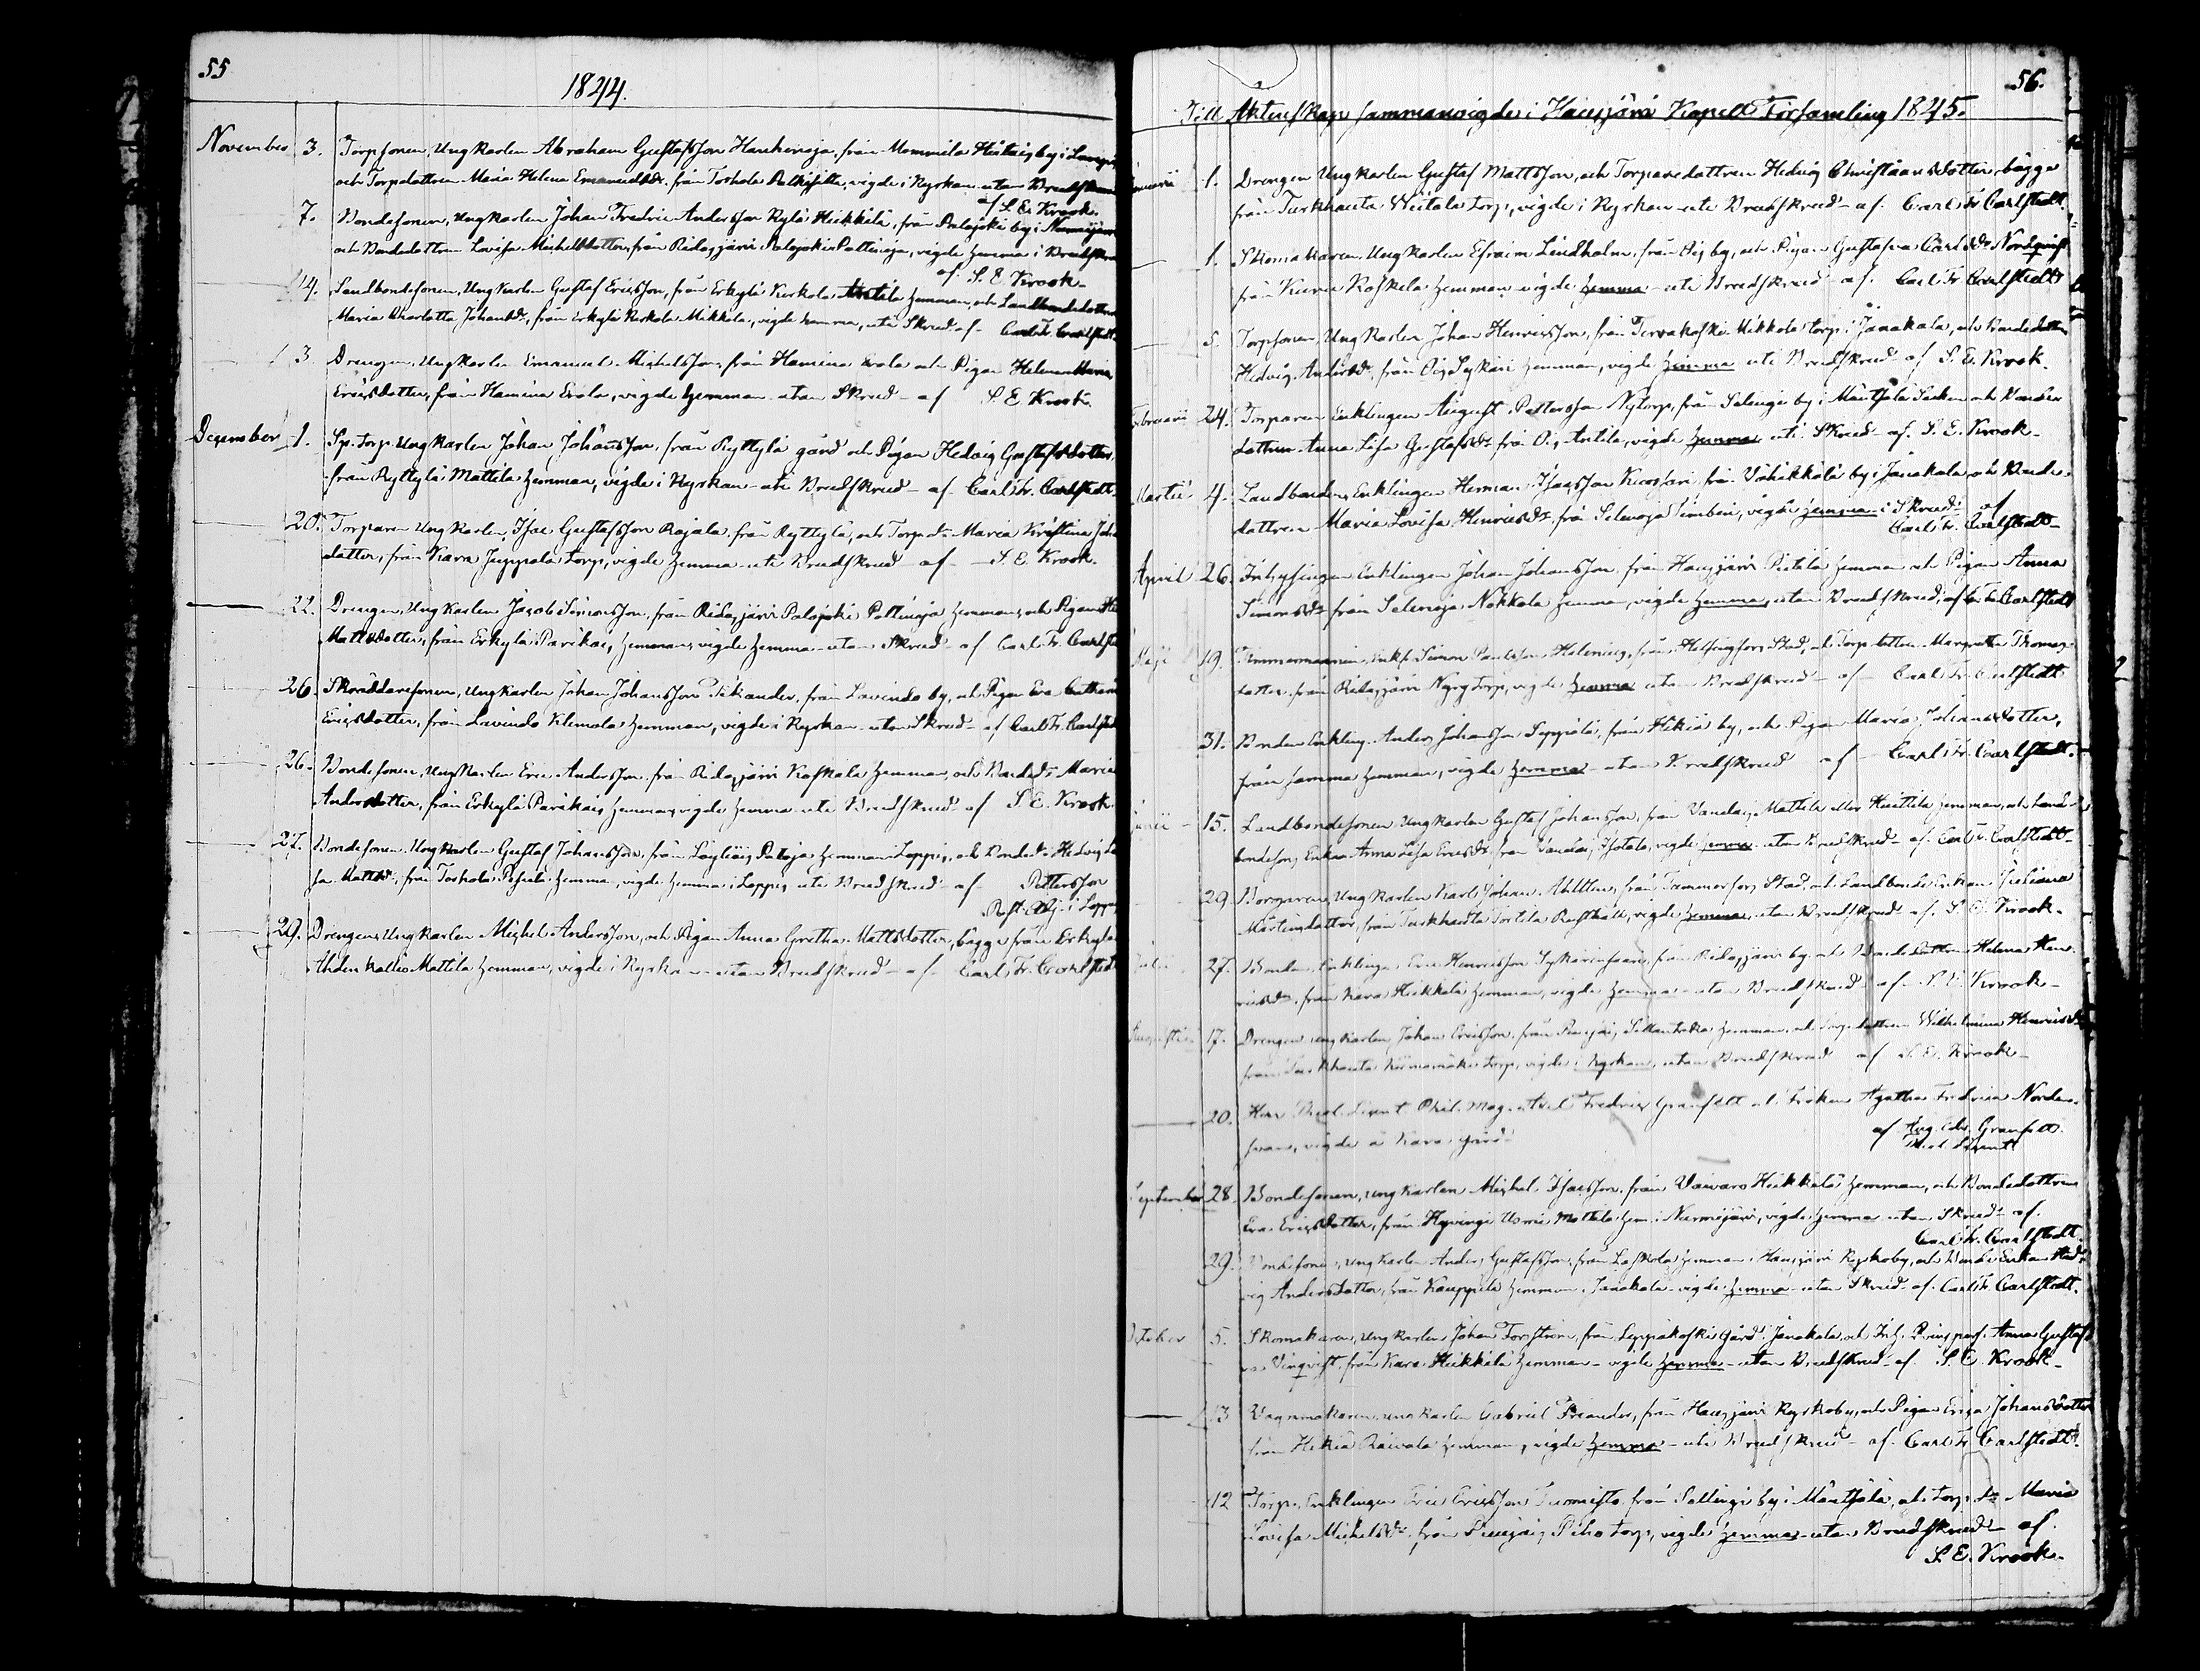 55
1844.
November 3. Torpsonen, Ungkarlen Abraham Gustafsson Hankenoja, från Mommila by i Lampis
och Torpdottren Maria Helena Emanuelsdr, från Torhola, vigde i Kyrkan utan Brudskrud
af S. E. Krook.
7. Bondesonen, Ungkarlen Johan Fredric Andersson Kylä Heikkilä, från Palojoki by i Nurmijärvi
och Bondedottren Lovisa Michelsdotter, från Ridasjärvi Palojoki Paltinoja, vigde hemma i Brudskrud
af S. E. Krook.
14. Landbondesonen, Ungkarlen Gustaf Ericsson, från Erkylä Kurkola Anttila hemman, och Landbondedottren
Maria Charlotta Johansdr, från Erkylä Mikkola, vigde hemma, uti Skrud af Carl Fr. Carlstedt.
3 Drengen, Ungkarlen Emanuel Michelsson, från Hamina Erola och Pigan Helena Maria
Ericsdotter, från Hamina Erola, vigde hemma utan Skrud af S E Krook.
December 1. Sp. torp. Ungkarlen Johan Johansson, från Ryttylä gård och Pigan Hedvig Gustafsdotter
från Ryttylä Mattila hemman, vigde i Kyrkan uti Brudskrud af Carl Fr. Carlstedt.
20. Torparen Ungkarlen, Isac Gustafsson Rajala från Ryttylä, och Torpdr Maria Kristina Joh
dotter, från Kara Juppala torp, vigde hemma uti Brudskrud af S. E. Krook.
22. Drengen, Ungkarlen Jacob Simonsson, från Ridasjärvi Palojoki Paltinoja hemman, och Pigan He
Mattsdotter, från Erkylä Parikas, hemman, vigde hemma utan Skrud af Carl Fr. Carlste
26. Skräddaresonen, Ungkarlen Johan Johansson Sikander, från Lavinda by, och Pigan Eva Catharina
Ericsdotter, från Lavinda Klemola hemman, vigde i Kyrkan utan Skrud af Carl Fr. Carlsted
26. Bondesonen, Ungkarlen Eric Andersson, från Ridasjärvi Kaskala hemman, och Bondedr Maria
Andersdotter, från Erkylä Parikas hemman, vigde hemma uti Brudskrud af S. E. Krook.
27. Bondesonen, Ungkarlen Gustaf Johansson, från Layliäis Paloja hemman Loppis, och Bondedr Hedvig Lo
sa Mattsdr, från Torhola hemman, vigde hemma i Loppis uti Brudskrud af Pettersson
Past. Adj. i Loppis
29. Drengen, Ungkarlen Michel Andersson, och Pigan Anna Gretha Mattsdotter, begge från Erkylä
Ahden Kallio Mattila hemman, vigde i Kyrkan utan Brudskrud af Carl Fr. Carlstedt
56.
Till Äktenskap sammanvigde i Hausjärvi Kapell Församling 1845.
Januarii 1. Drengen Ungkarlen Gustaf Mattsson, och Torparedottren Hedvig Christiansdotter, begge
från Turkhauta Wiitala torp, vigde i Kyrkan uti Brudskrud af Carl Fr. Carlstedt.
1. Skomakaren, Ungkarlen Efraim Lindholm, från Oij by, och Pigan Gustafva Carlsdr Nordqvist
från Kurva Koskela hemman vigde hemma uti Brudskrud af Carl Fr Carlstedt
5. Torpsonen, Ungkarlen Johan Henricsson, från Tervakoski Mikkola torp i Janakala, och Bondedottren
Hedvig Andersdr, från Oij Sykäri hemman, vigde hemma uti Brudskrud af S. E. Krook.
Februarii 24. Torparen Enklingen August Pettersson Nytorp, från Salinge by i Mäntsälä Socken och Bonde
dottren Anna Lisa Gustafsdr från Oij Anttila, vigde hemma uti Skrud af S. E. Krook.
Martii 4. Landbonden, Enklingen Herman Isacsson från Vähikkälä by i Janakala och Bonde
dottren Maria Lovisa Henricsdr från Selinoja Timberi, vigde hemma i Skrud af
Carl Fr. Carlstedt
April 26. Inhysingen Enklingen Johan Johansson från Hausjärvi Pietilä hemman och Pigan Anna
Simonsdr från Selinoja Nokkala hemman, vigde hemma utan Brudskrud, af C. Fr. Carlstedt
Maji 19. Timmermannen, Enkl. Simon Paulsson Helenius, från Helsingfors Stad, och Torpdottren Margaretha Thomas
dotter, från Ridasjärvi torp, vigde hemma utan Brudskrud af Carl Fr. Carlstedt
31. Bonden Enkling. Anders Johansson Seppälä, från Hikiä by, och Pigan Maria Johansdotter,
från samma hemman, vigde hemma utan Brudskrud af Carl Fr. Carlstedt.
Junii 15. Landbondesonen Ungkarlen Gustaf Johansson, från Vandas, Mattila eller Huittila hemman, och Land
bondeson, Enkan Anna Lisa Ericsdr från Vandas, Isotalo, vigde hemma utan Brudskrud af Carl Fr. Carlstedt
29. Ungkarlen Karl Johan, från Tammerfors Stad, och Landbonde Enkan Juliana
Mårtensdotter, från Turkhauta Torttila Rusthåll, vigde hemma, utan Brudskrud af S E Krook.
Julii 27. Bonden, Enklingen Eric Henricsson, från Ridasjärvi by, och Bondedottren Helena Hen
ricsdr, från Kara Heikkilä hemman, vigde hemma utan Brudskrud af S. E. Krook.
Augusti 17. Drengen ungkarlen Johan Ericsson, från hemman, och Torpdottren Wilhelmina Henricsdr
från Turkhauta torp, vigde i Kyrkan, utan Brudskrud af S E. Krook
20. Herr Theol. Licent. Phil. Mag. Axel Fredric Granfelt och Fröken Agatha Fredrica Norden
svan, vigde å Kara gård. af Aug. Edv. Granfelt
Theol. Licent
September 28. Bondesonen, ungkarlen Michel Isacsson från Vaivaro Heikkilä hemman, och Bondedottren
Eva Ericsdotter, från Hyvinge Usmi Mattila hem. i Nurmijärvi, vigde hemma utan Skrud af
Carl Fr. Carlstedt.
29. Bondesonen, ungkarlen Anders Gustafsson, från Laskola hemman Hausjärvi Kyrkoby, och Bonde Enkan Hed
vig Andersdotter, från Kauppila hemman i Janakala vigde hemma utan Skrud af Carl Fr. Carlstedt.
October 5. Skomakaren, ungkarlen Johan Forsström, från Leppäkoski Gård i Janakala, och Inh. Anna Gustafs
Vinqvist, från Kara Heikkilä hemman vigde hemma utan Brudskrud af S. E. Krook.
13 Vagnmakaren, ungkarlen Gabriel, från Hausjärvi Kyrkoby, och Pigan Erica Johansdotter
från Hikiä Raivala hemman, vigde hemma uti Brudskrud af Carl Fr Carlstedt.
12 Torp. Enklingen Eric Ericsson Nurmisto från Sallinge by i Mäntsälä, och torp. dr Maria
Lovisa Michelsdr, från Piho torp, vigde hemma utan Brudskrud af
S. E. Krook.